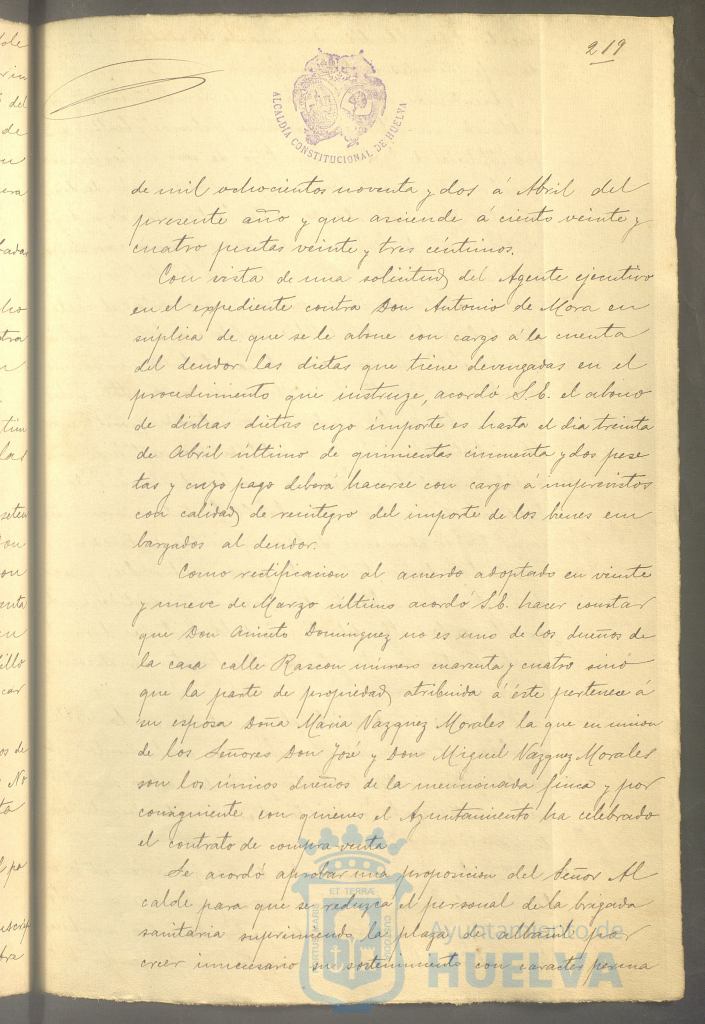 219
ALCALDIA CONSTITUCIONAL DE HUELVA
de mil ochocientos noventa y dos á Abril del
presente año y que asciende á ciento veinte y
cuatro pesetas veinte y tres céntimos.
Con vista de una solicitud del Agente ejecutivo
en el expediente contra Don Antonio de Mora en
súplica de que se le abone con cargo á la cuenta
del deudor las dietas que tiene devengadas en el
procedimiento que instruye, acordó S.E. el abono
de dichas dietas cuyo importe es hasta el dia treinta
de Abril último de quinientas cincuenta y dos pese
tas y cuyo pago deberá hacerse con cargo á imprevistos
con calidad de reintegro del importe de los bienes em
bargados al deudor.
Como rectificacion al acuerdo adoptado en veinte
y nueve de Marzo último acordó S.E. hacer constar
que Don Aniceto Dominguez no es uno de los dueños de
la casa calle Rascon número cuarenta y cuatro sinó
que la parte de propiedad atribuida á éste pertenece á
su esposa Doña Maria Vazquez Morales la que en union
de los Señores Don José y Don Miguel Vazquez Morales
son los únicos dueños de la mencionada finca y por
consiguiente con quienes el Ayuntamiento ha celebrado
el contrato de compra-venta
Se acordó aprobar una proposicion del Señor Al
calde para que se reduzca el personal de la brigada
sanitaria suprimiendo la plaza de albañil por
creer innecesario su sostenimiento con caracter perma
ET TERRÆ
Ayuntamiento de
HUELVA